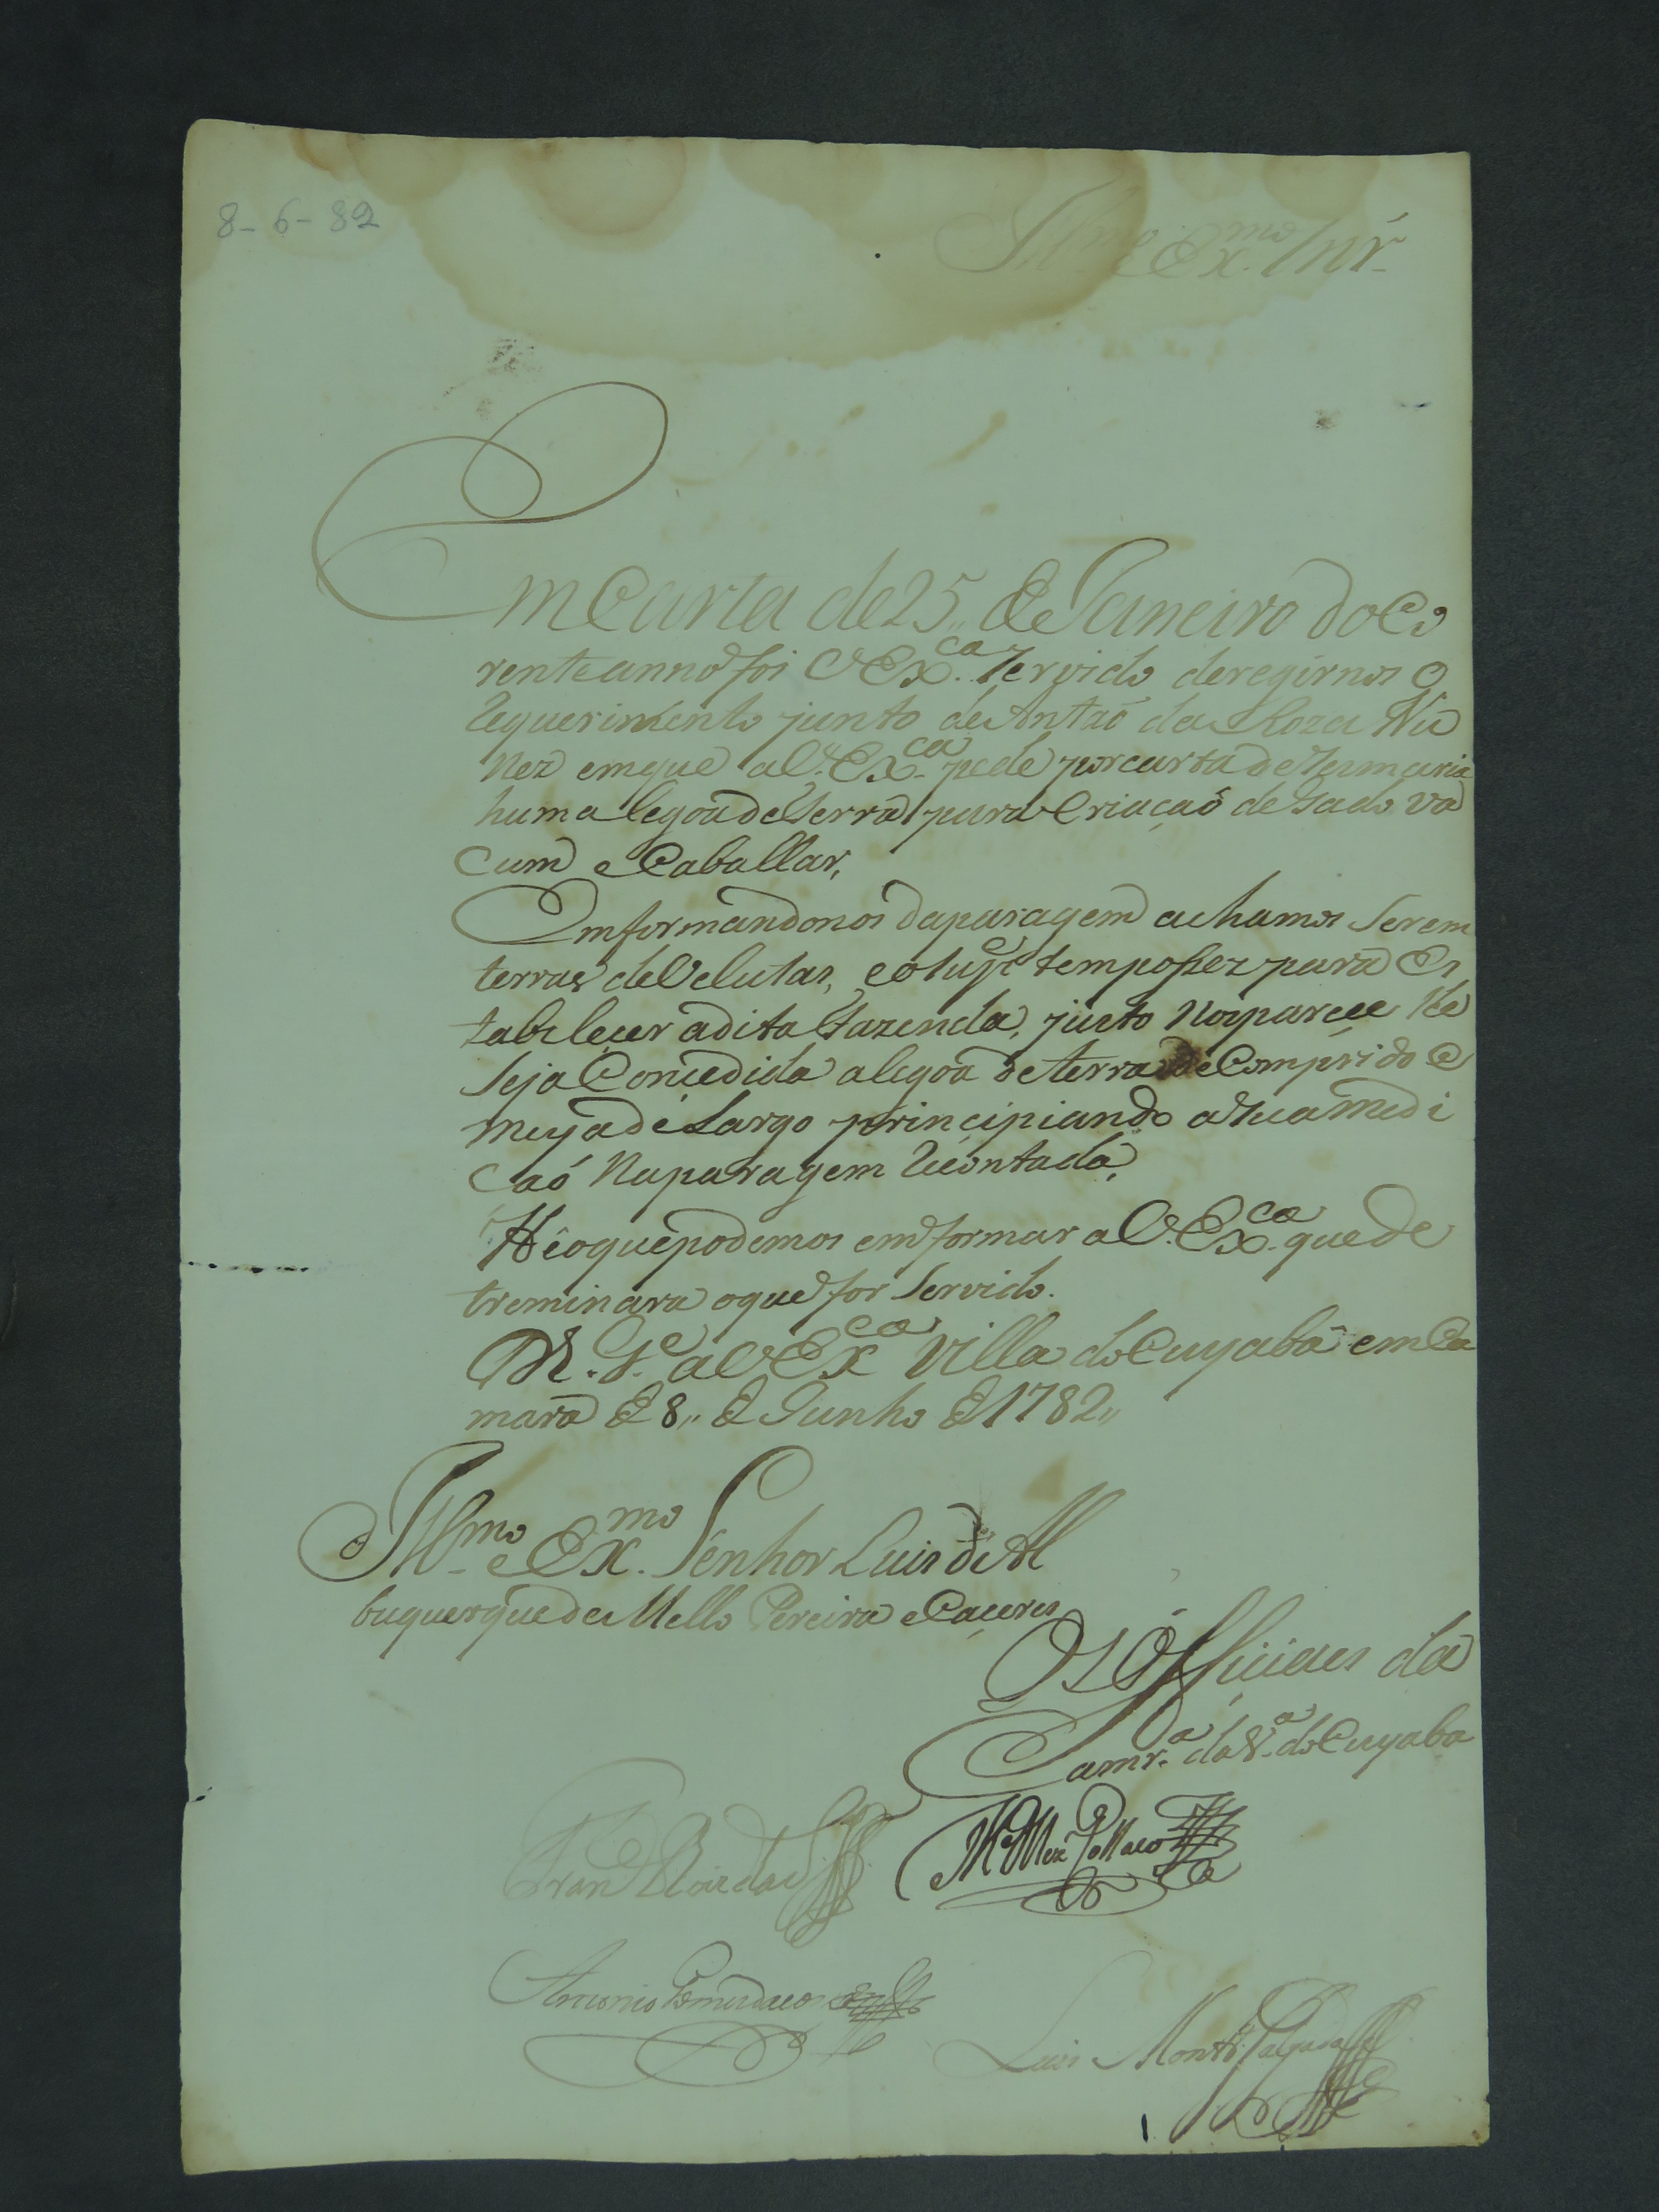 8-6-82
Ill.mo e Ex.mo Snr̃
Em Carta de 25,, de Janeiro do Co
rente anno foi VEx.ca Servido deregirnos o
Requerimento junto de Antaõ da Roza Nu
nez emque a V. Ex.ca pede por carta de Sesmaria
huma legoa de terra para Criaçaõ de Gado Va
cum e Caballar,
Emformandonos da paragem achamos Serem
terras deVelutas, e o Sup.e tem posses para Es
tabeleçer adita fazenda, justo Nosparece lhe
Seja Concedida a legoa de terra de Comprido e
meya de Largo prinçipiando a sua medi
çaó Naparagem Reontada,
Hé oque podemos emformar a V. Ex.ca que de
treminara oque for Servido.
D.s G.e a VEx.ca Villa do Cuyabá em Ca
mara de 8,, de Junho de 1782,,
Ill.mo e Ex.mo Senhor Luis de Al
buquerque de Mello Pereira e Caçeres
Os Officiaes da
Camr.a da V.a do Cuyaba
Antonio
Luis Montr.o Salgado